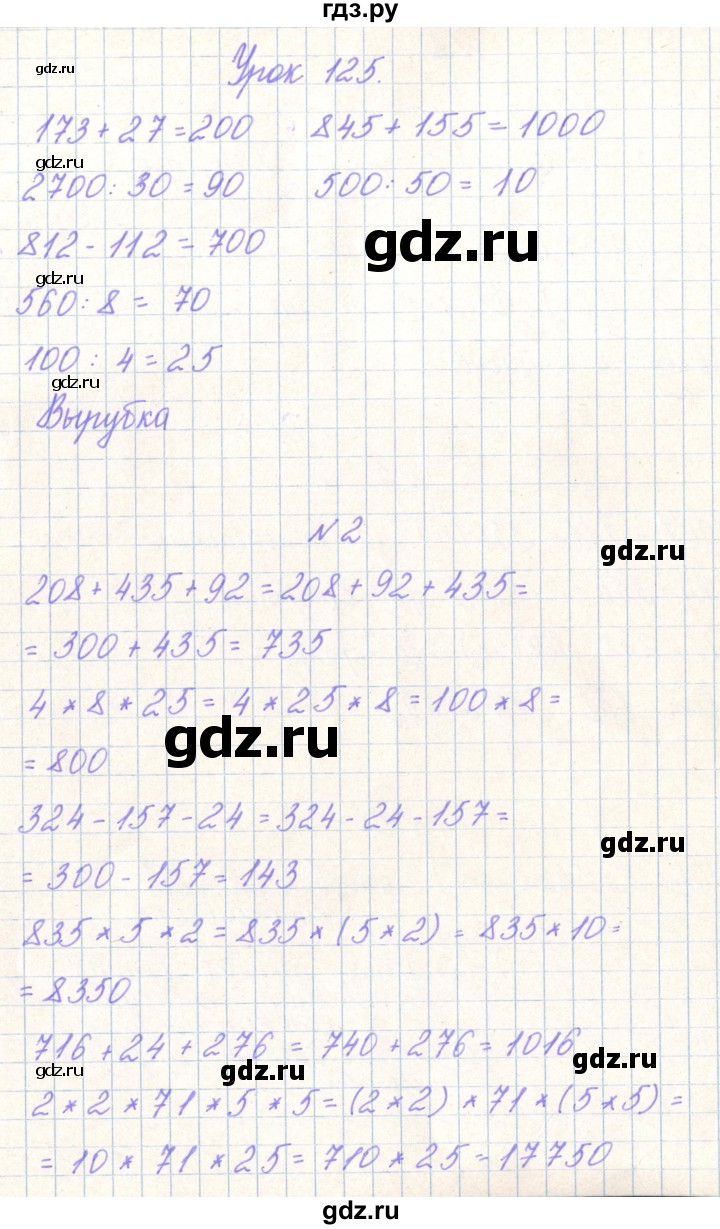 гдз.ру
gdz.ru
Урок 125.
173 + 27 = 200 845 + 155 = 1000
gdz.ru
2700 : 30 = 90 500 : 50 = 10
gdz.ru
812 - 112 = 700
gdz.ru
560 : 8 = 70
100 : 4 = 25
gdz.ru
Вырубка
N 2
gdz.ru
208 + 435 + 92 = 208 + 92 + 435 =
= 300 + 435 = 735
4 * 8 * 25 = 4 * 25 * 8 = 100 * 8 =
gdz.ru
= 800
324 - 157 - 24 = 324 - 24 - 157 =
gdz.ru
= 300 - 157 = 143
835 * 5 * 2 = 835 * (5 * 2) = 835 * 10 =
= 8350
716 + 24 + 276 = 740 + 276 = 1016
gdz.ru gdz.ru gdz.ru
2 * 2 * 71 * 5 * 5 = (2 * 2) * 71 * (5 * 5) =
= 10 * 71 * 25 = 710 * 25 = 17750
gdz.ru